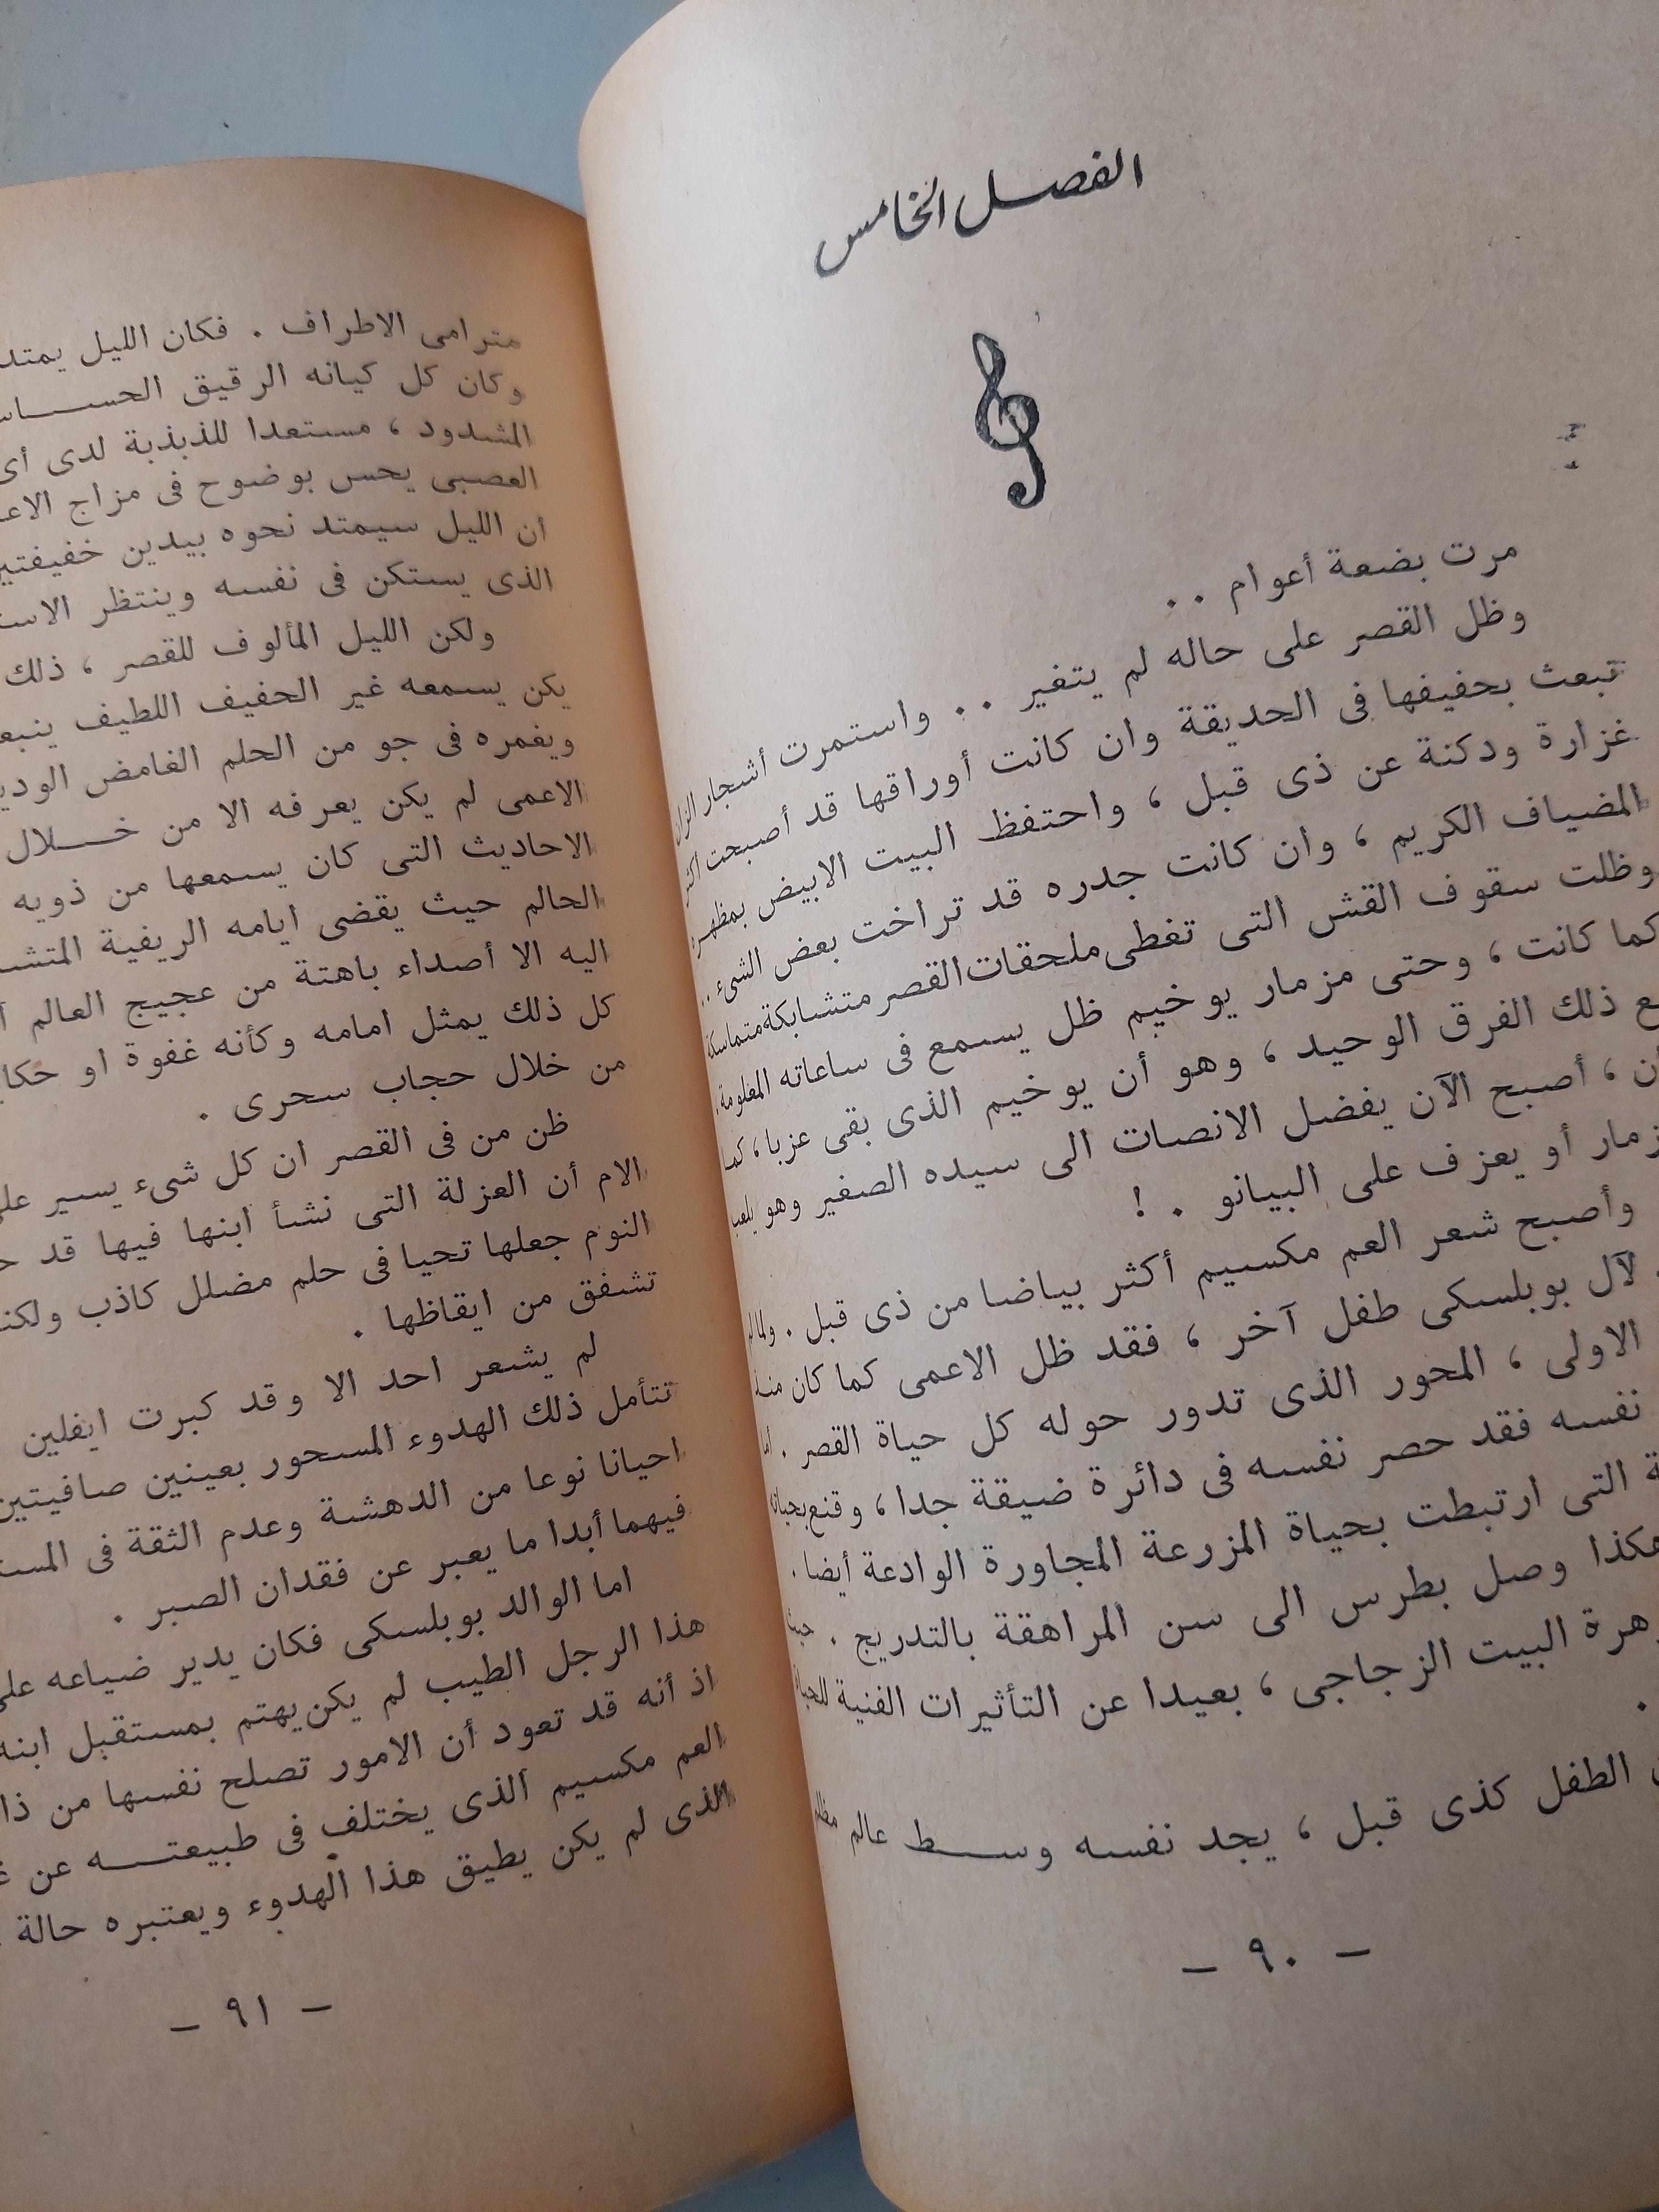 الفصل الخامس
مرت بضعة أعوام . .
وظل القصر على حاله لم يتغير . . واستمرت أشجار الزان
تبعث بحفيفها فى الحديقة وان كانت أوراقها قد أصبحت أكثر
غزارة ودكنة عن ذى قبل ، واحتفظ البيت الابيض بمظهره
المضياف الكريم ، وان كانت جدره قد تراخت بعض الشىء . .
وظلت سقوف القش التى تغطى ملحقات القصر متشابكة متماسكة
كما كانت ، وحتى مزمار يوخيم ظل يسمع فى ساعاته المعلومة ،
ذلك الفرق الوحيد ، وهو أن يوخيم الذى بقى عزبا ، كما
، أصبح الآن يفضل الانصات الى سيده الصغير وهو يلعب
أو يعزف على البيانو . !
وأصبح شعر العم مكسيم أكثر بياضا من ذى قبل . ولما لم
لآل بوبلسكى طفل آخر ، فقد ظل الاعمى كما كان منذ
الاولى ، المحور الذى تدور حوله كل حياة القصر . اما
نفسه فقد حصر نفسه فى دائرة ضيقة جدا ، وقنع بحياته
التى ارتبطت بحياة المزرعة المجاورة الوادعة أيضا .
وصل بطرس الى سن المراهقة بالتدريج .
البيت الزجاجى ، بعيدا عن التأثيرات الفنية للحياة
.
الطفل كذى قبل ، يجد نفسه وسط عالم مظلم
- ٩٠ -
مترامى الاطراف . فكان الليل يمتد
وكان كل كيانه الرقيق
المشدود ، مستعدا للذبذبة لدى أى
العصبى يحس بوضوح فى مزاج
أن الليل سيمتد نحوه بيدين
الذى يستكن فى نفسه وينتظر
ولكن الليل المألوف للقصر ، ذلك
يكن يسمعه غير الحفيف اللطيف
ويغمره فى جو من الحلم الغامض
الاعمى لم يكن يعرفه الا من خلال
الاحاديث التى كان يسمعها من ذويه
الحالم حيث يقضى ايامه الريفية
اليه الا أصداء باهتة من عجيج العالم
كل ذلك يمثل امامه وكأنه غفوة او
من خلال حجاب سحرى .
ظن من فى القصر ان كل شىء يسير
الام أن العزلة التى نشأ ابنها فيها قد
النوم جعلها تحيا فى حلم مضلل كاذب
تشفق من ايقاظها .
لم يشعر احد الا وقد كبرت ايفلين
تتأمل ذلك الهدوء المسحور بعينين
احيانا نوعا من الدهشة وعدم الثقة فى
فيهما أبدا ما يعبر عن فقدان الصبر .
اما الوالد بوبلسكى فكان يدير ضياعه
هذا الرجل الطيب لم يكن يهتم بمستقبل
اذ أنه قد تعود أن الامور تصلح نفسها من
العم مكسيم الذى يختلف فى طبيعته عن
الذى لم يكن يطيق هذا الهدوء ويعتبره حالة
- ٩١ -